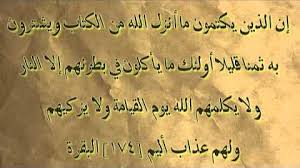 إن الذين يكتمون ما أنزل الله من الكتاب ويشترون
به ثمنا قليلا أولئك ما يأكلون في بطونهم إلا النار
ولا يكلمهم الله يوم القيامة ولا يزكيهم
ولهم عذاب أليم [١٧٤] البقرة